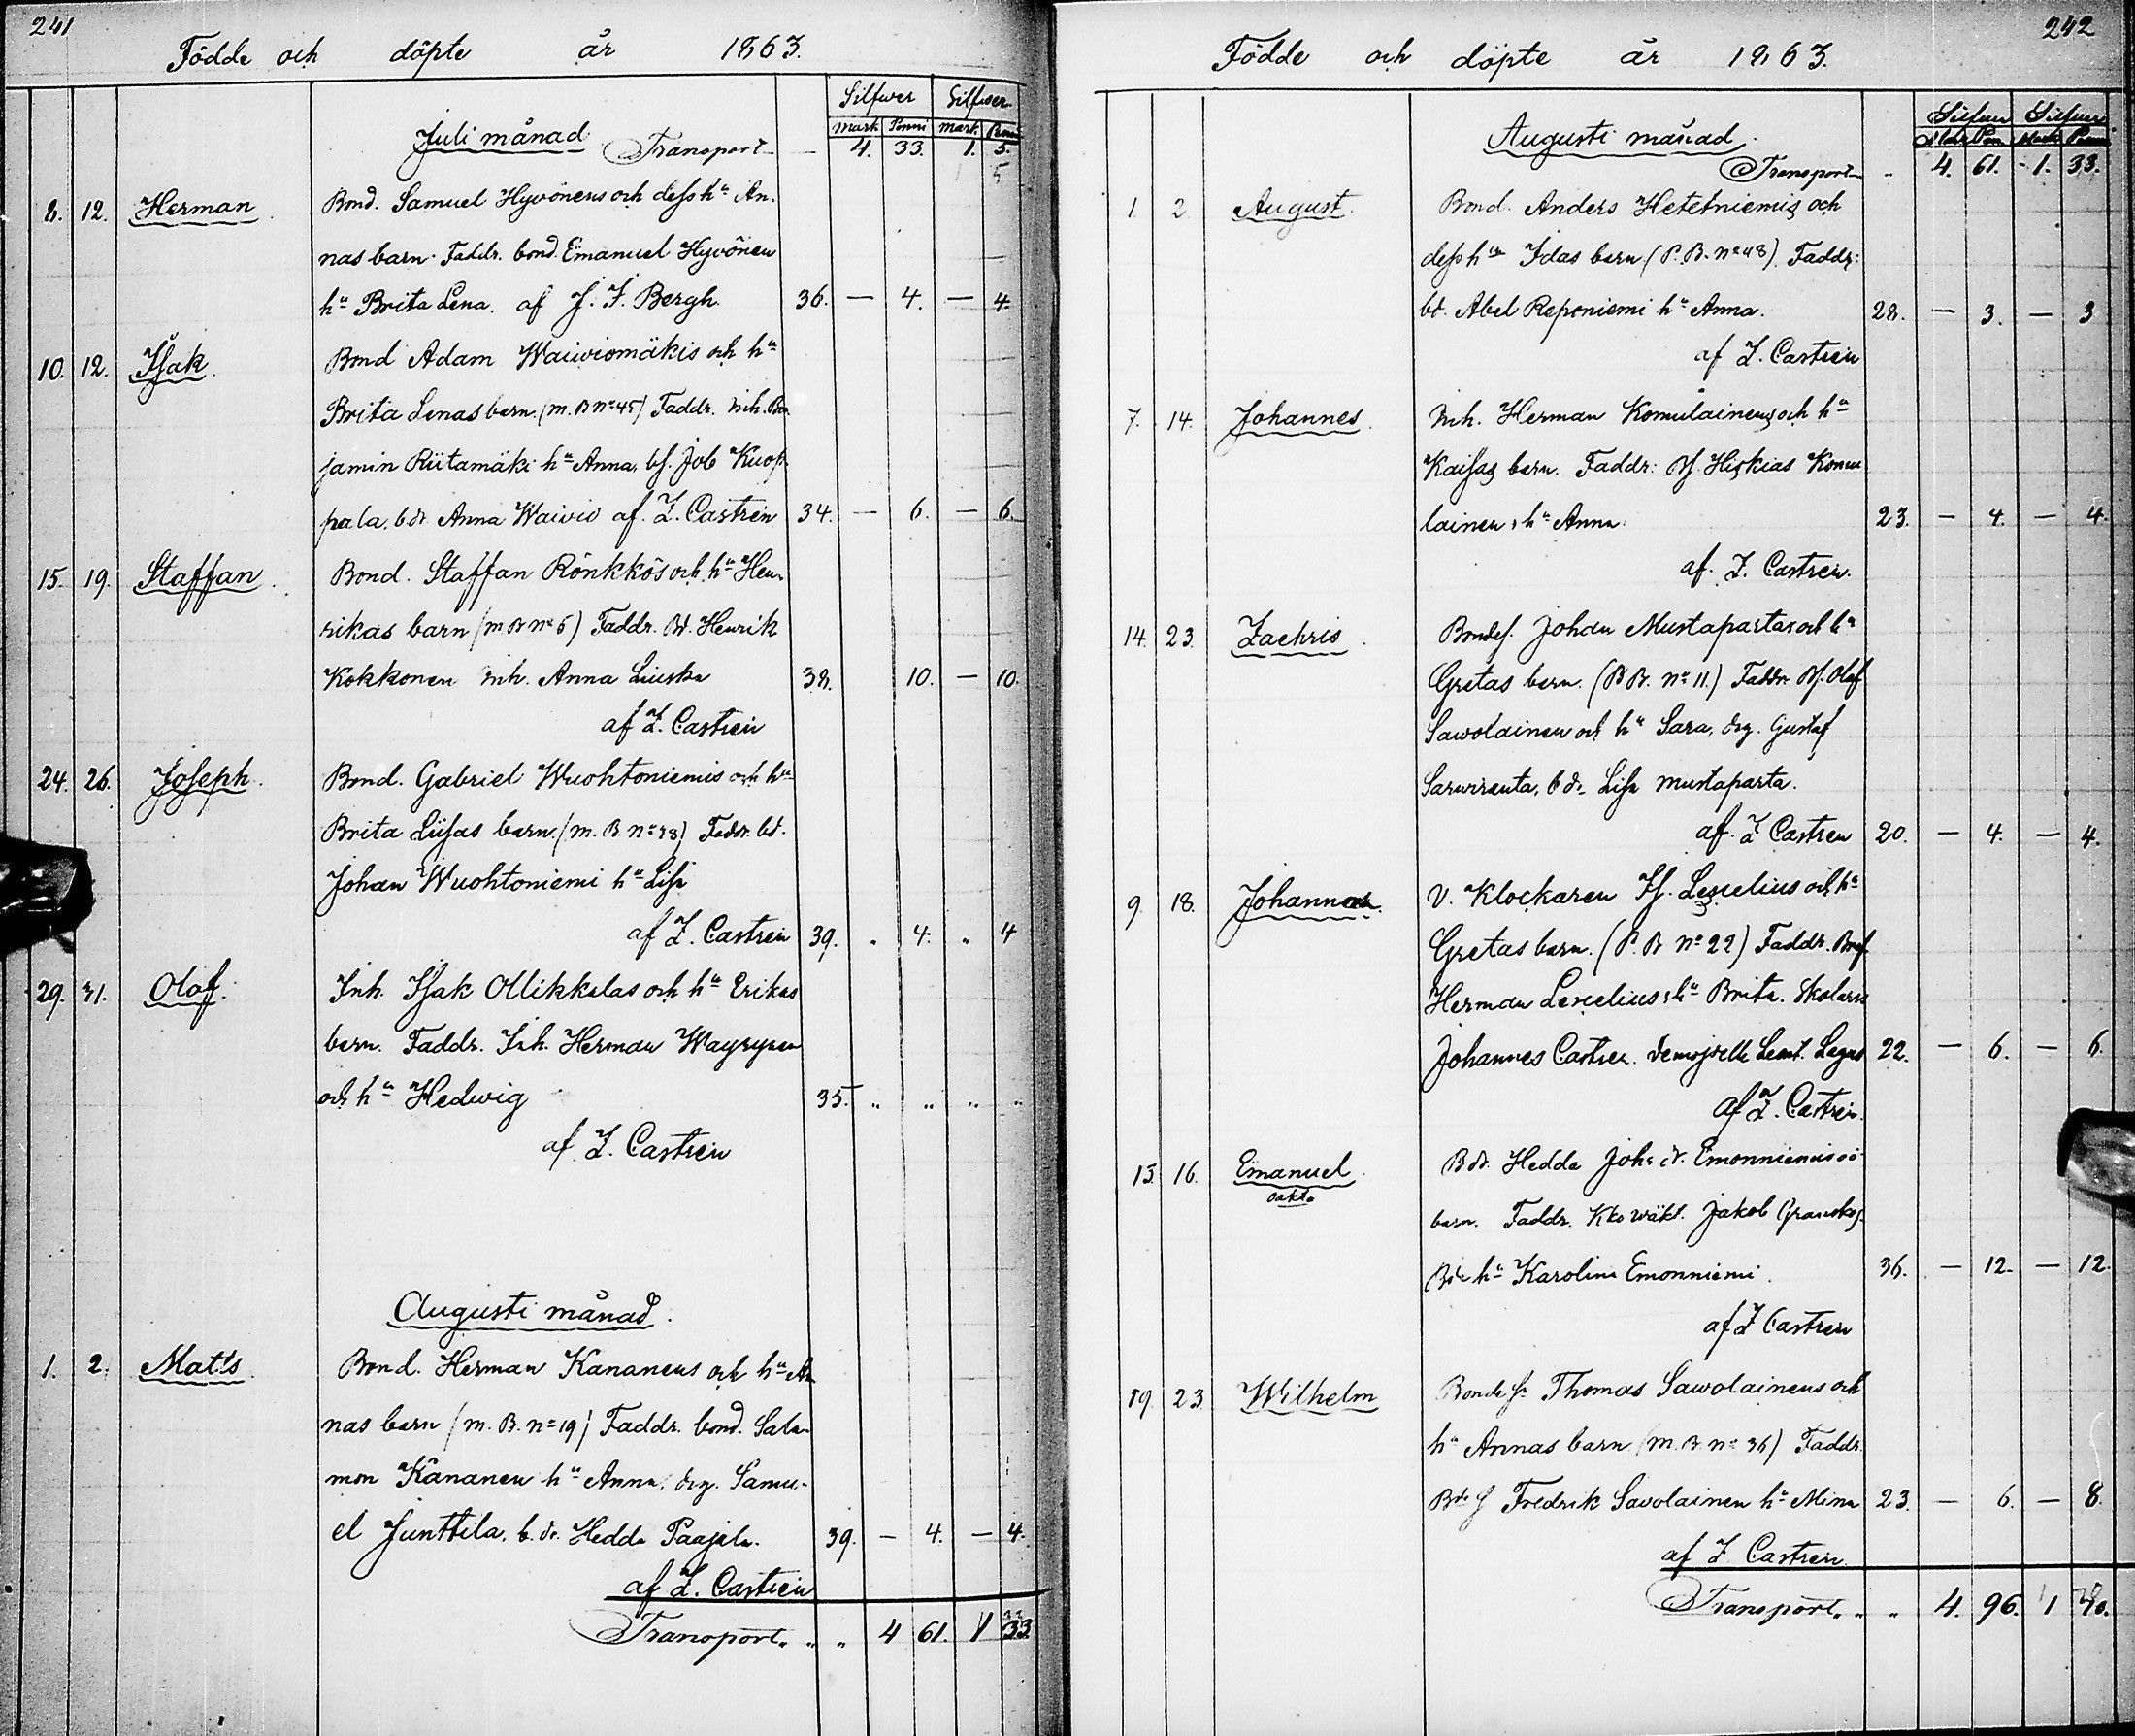 241
Födde och döpte år 1863.
Silfwer Silfwer
Juli månad Mark Penni Mark Penni
Transport — 4. 33. 1. 5.
5
8. 12. Herman Bond. Samuel Hyvönens och dess hu An-
nas barn. Faddr. bond. Emanuel Hyvönen
hu Brita Lena. af J. F. Bergh. 36. — 4. — 4.
10. 12. Isak. Bond Adam Waiwiomäkis och hu
Brita Lenas barn. (M. B No 45) Faddr. Inh. Ben
jamin Riitamäki hu Anna, bs. Job Kuop-
pala. bdr Anna Waivio af. Z. Castrén 34. — 6. — 6.
15. 19. Staffan. Bond. Staffan Rönkkös och hu Hen-
rikas barn (M B No 6) Faddr. Bd. Henrik
Kokkonen Inh. Anna Liuska 38. 10. — 10.
af Z. Castrén
24. 26. Joseph. Bond. Gabriel Wuohtoniemis och hu
Brita Liisas barn. (M. B. No 38) Faddr. bd.
Johan Wuohtoniemi hu Lisa
af Z. Castrén 39. " 4. " 4
29. 31. Olof. Inh. Isak Ollikkalas och hu Erikas
barn. Faddr. Inh. Herman Wäyrynen
och hu Hedwig 35. " " " "
af Z. Castrén
Augusti månad.
1. 2. Matts. Bond. Herman Kananens och hu An
nas barn (M. B. No 19) Faddr. bond. Salo-
mon Kananen hu Anna, drg. Samu-
el Junttila, b. dr. Hedda Paajala. 39. — 4. — 4.
af Z. Castrén
Transport " " " 4 61. 1 33.
242
Födde och döpte år 1863.
Silfwer Silfwer
Augusti månad. Mark Pen Mark Penni
Transport " 4. 61. 1. 33.
1. 2 August. Bond. Anders Hetetniemis och
dess hu Idas barn (P. B. No 48). Faddr:
bd. Abel Reponiemi hu Anna. 28. — 3. — 3
af Z. Castrén
7. 14. Johannes. Inh. Herman Komulainens och hu
Kaisas barn. Faddr: Bs. Hiskias Komu
lainen, hu Anna. 23. — 4. — 4.
af. Z. Castren.
14. 23. Zachris. Bondes. Johan Mustapartas och hu
Gretas barn. (B B. No 11.) Faddr. Bs. Olof
Sawolainen och hu Sara, drg. Gustaf
Sarwiranta, b dr Lisa Mustaparta.
af. Z Castren 20. — 4. — 4.
9. 18. Johannes. V. Klockaren Is. Lescelius och hu
Gretas barn. (P. B No 22) Faddr.
Herman Lescelius, hu Brita.
Johannes Castren. 22. — 6. — 6.
af Z. Castrén.
13. 16. Emanuel. B dr. Hedda Joh. dr. Emonniemis oä
oäkta barn. Faddr. Jakob Granskog.
hu Karolina Emonniemi. 36. — 12. — 12.
af Z Castren
19. 23 Wilhelm Bondes. Thomas Sawolainens och
hu Annas barn (M. B. No 36) Faddr.
Bds Fredrik Savolainen hu Mina 23. — 6. — 8.
af Z Castren.
Transport. " " 4. 96. 1